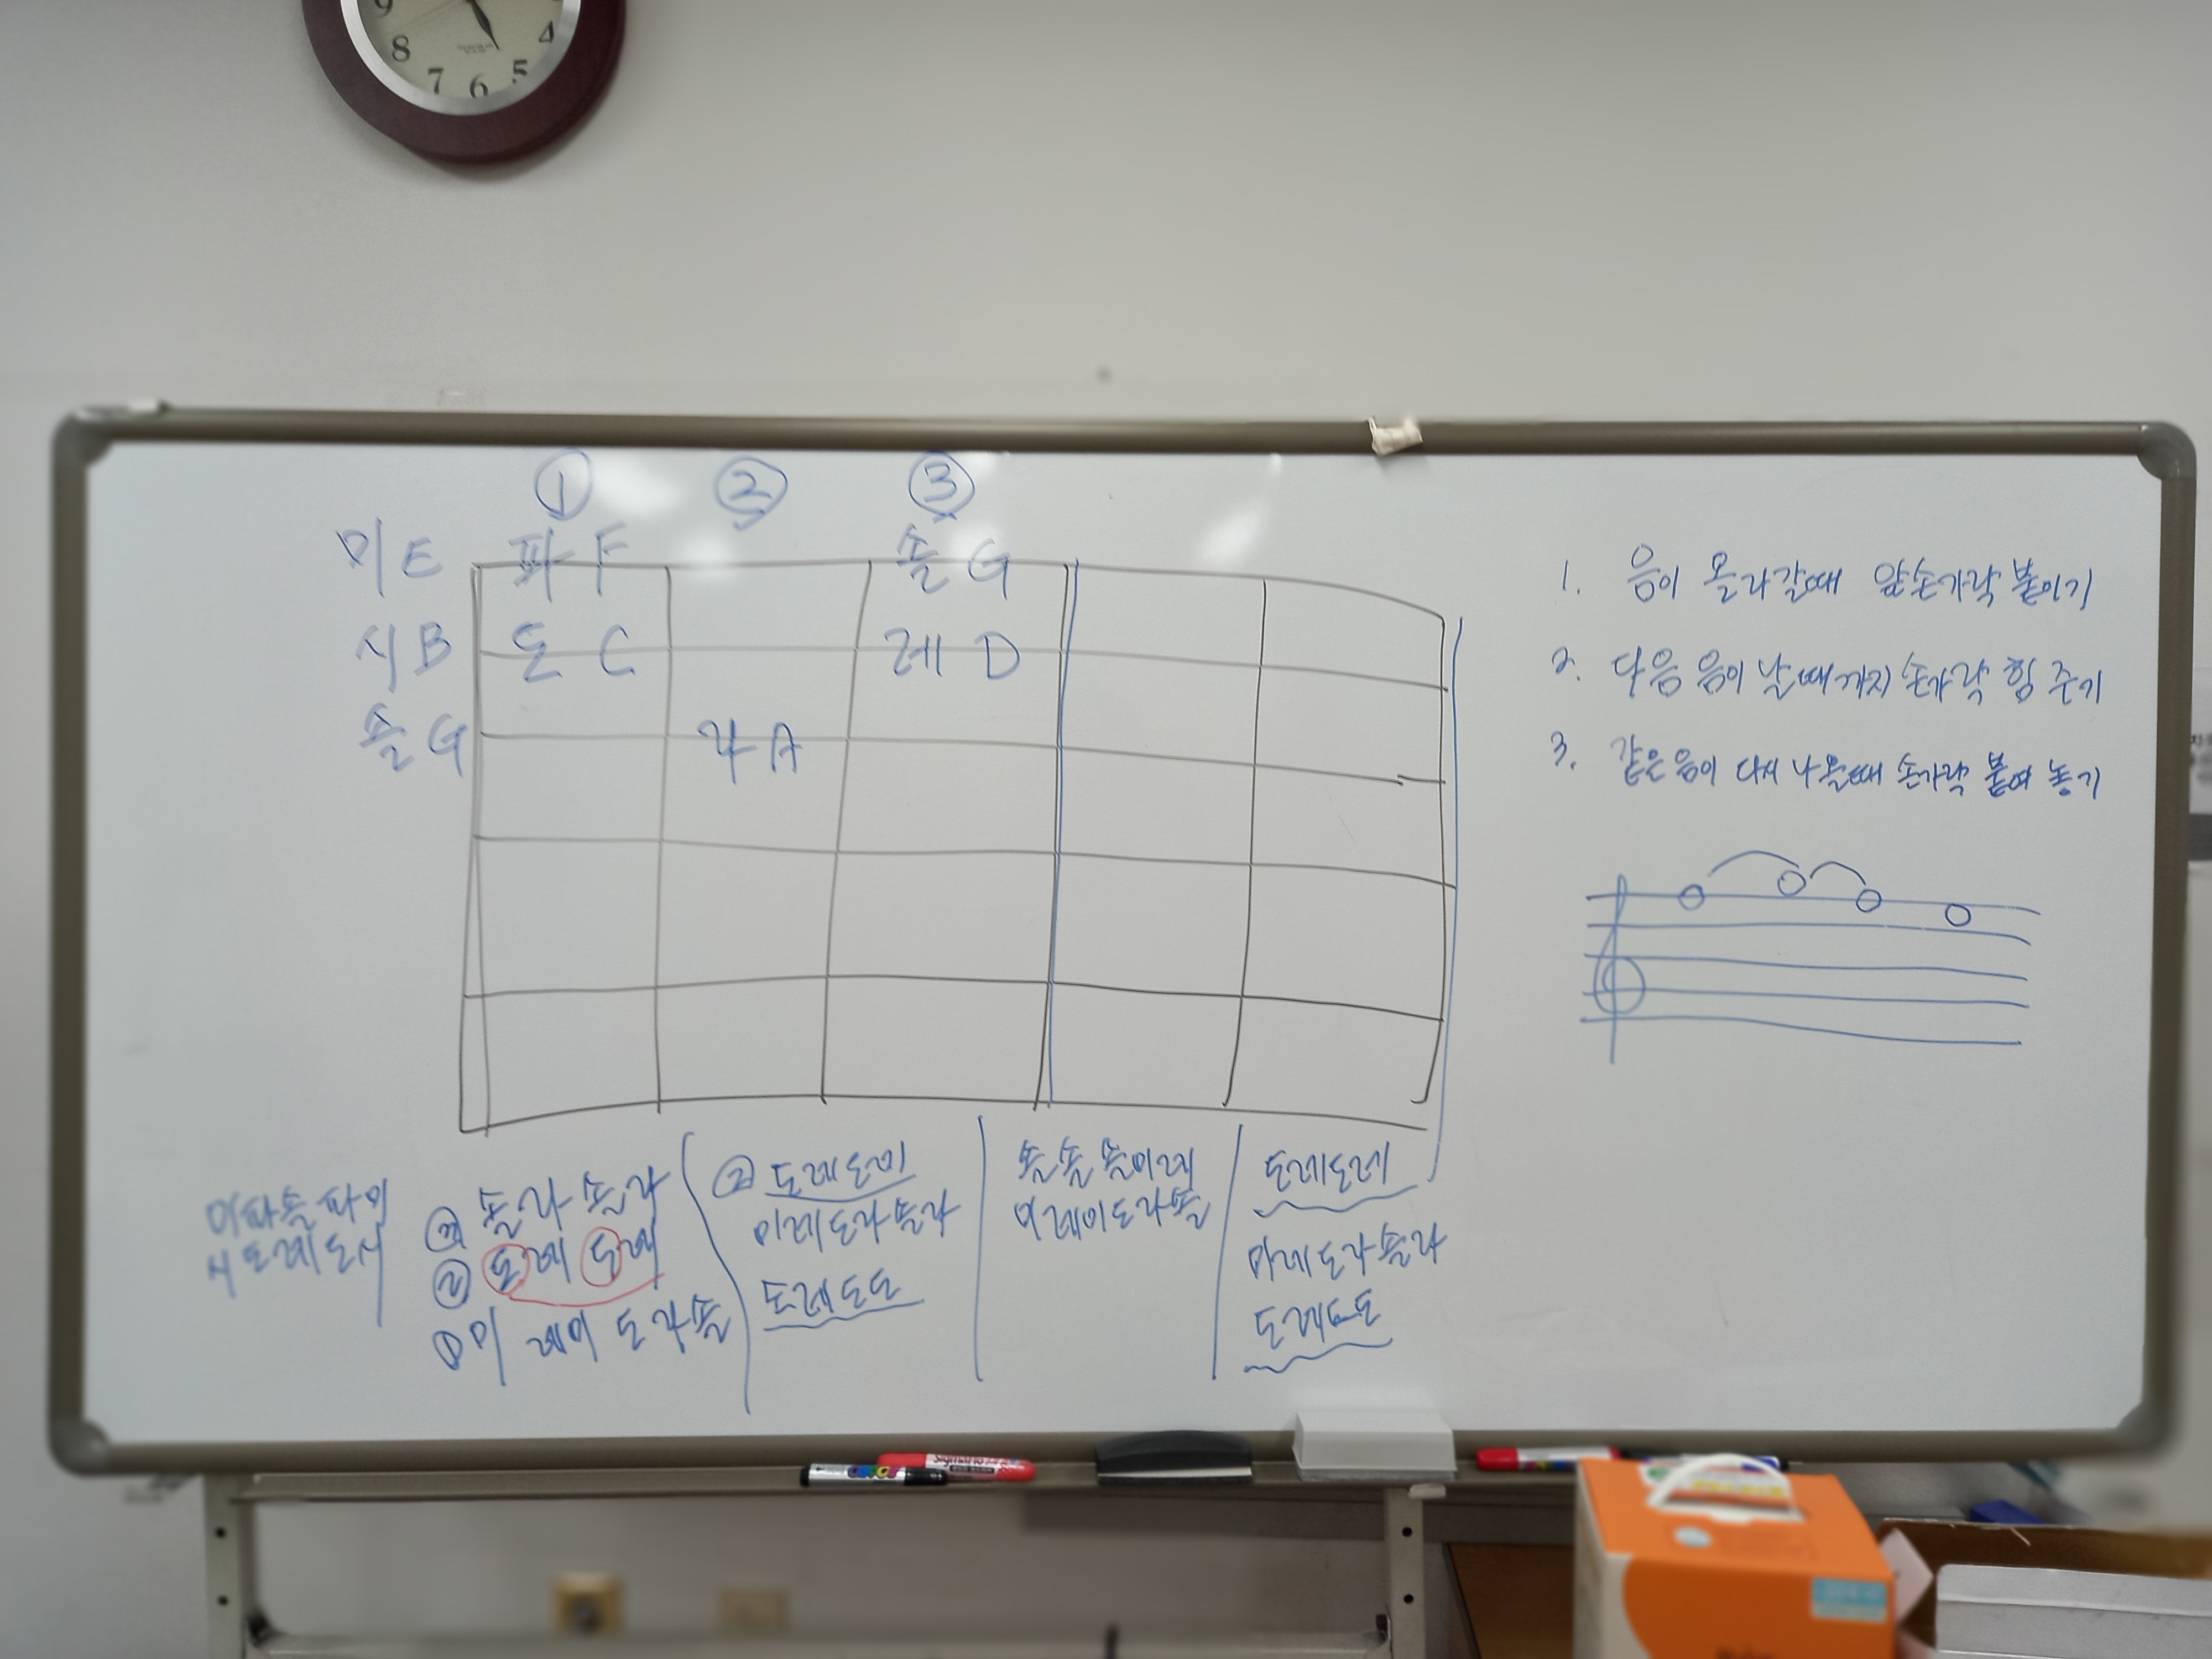 9
8
7
6
5
4
① ② ③
미 E 파 F 솔 G
시 B 도 C 레 D
솔 G 라 A
1. 음이 올라갈때 앞손가락 붙이기
2. 다음 음이 날때까지 손가락 힘 주기
3. 같은 음이 다시 나올때 손가락 붙여 놓기
미파솔파미
시도레도시
③ 솔라솔라
② 도레도레
① 미 레미 도라솔
② 도레도미
미레도라솔라
도레도도
솔솔솔미레
미레미도라솔
도레도레
미레도라솔라
도레도도